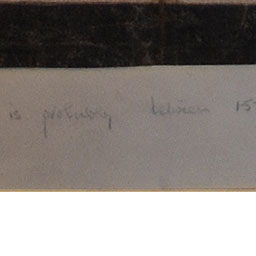 is probably between 15